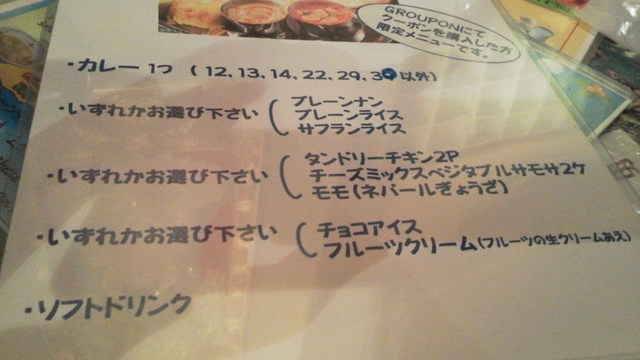 GROUPONにて
クーポンを購入した方
限定メニューです。
・カレー 1つ （12、13、14、22、29、3 以外）
・いずれかお選び下さい
プレーンナン
プレーンライス
サフランライス
・いずれかお選び下さい
タンドリーチキン2P
チーズミックスベジタブルサモサ2ケ
モモ（ネパールぎょうざ）
・いずれかお選び下さい
チョコアイス
フルーツクリーム（フルーツの生クリームあえ）
・ソフトドリンク